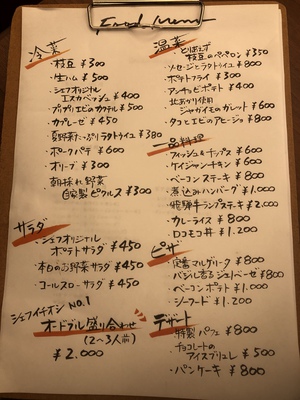 Food Menu
冷菜
・枝豆 ¥300
・生ハム ¥500
・シェフオリジナル
エスカベッシュ ¥400
・カプレーゼ ¥450
・夏野菜たっぷりラタトゥイユ ¥380
・ポークパテ ¥600
・オリーブ ¥300
朝採れ野菜
自家製ピクルス ¥300
サラダ
・シェフオリジナル
ポテトサラダ ¥450
・本日のお野菜サラダ ¥450
・コールスローサラダ ¥450
シェフイチオシ NO.1
オードブル盛り合わせ
(2〜3人前)
¥2.000
温菜
・とりあえず
枝豆のペペロン ¥350
・ソーセージとラタトゥイユ ¥800
・ポテトフライ ¥300
・アンチョビポテト ¥400
・北あかり使用
ジャガイモのガレット ¥600
・タコとエビのアヒージョ ¥800
一品料理
・フィッシュ&チップス ¥600
・ケイジャンチキン ¥600
・ベーコンステーキ ¥800
・煮込みハンバーグ ¥1.000
・飛騨牛ランプステーキ ¥2.000
・カレーライス ¥800
・ロコモコ丼 ¥1.200
ピザ
・定番マルゲリータ ¥800
・バジル香るジェノベーゼ ¥800
・ベーコンポテト ¥1.000
・シーフード ¥1.200
デザート
・特製パフェ ¥800
・チョコレートの
アイスブリュレ ¥500
・パンケーキ ¥800